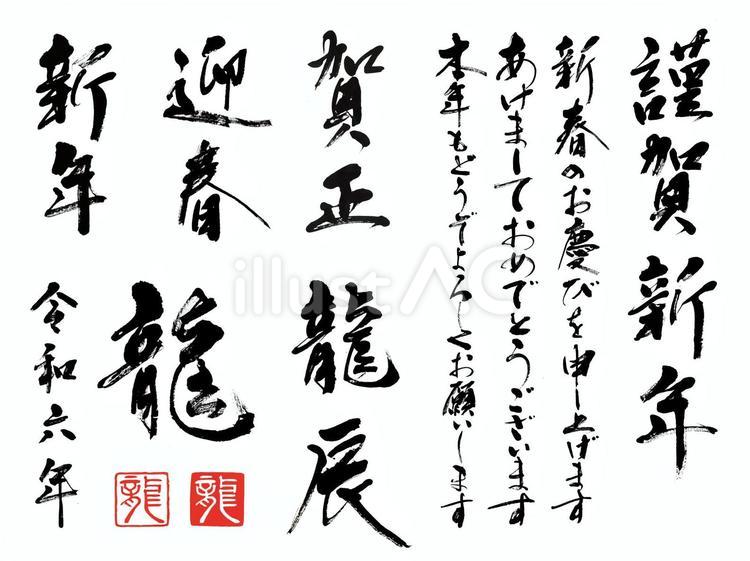 謹賀新年
新春のお慶びを申し上げます
あけましておめでとうございます
本年もどうぞよろしくお願いします
賀正
龍
辰
迎春
龍
龍
龍
新年
令和六年
illustAC